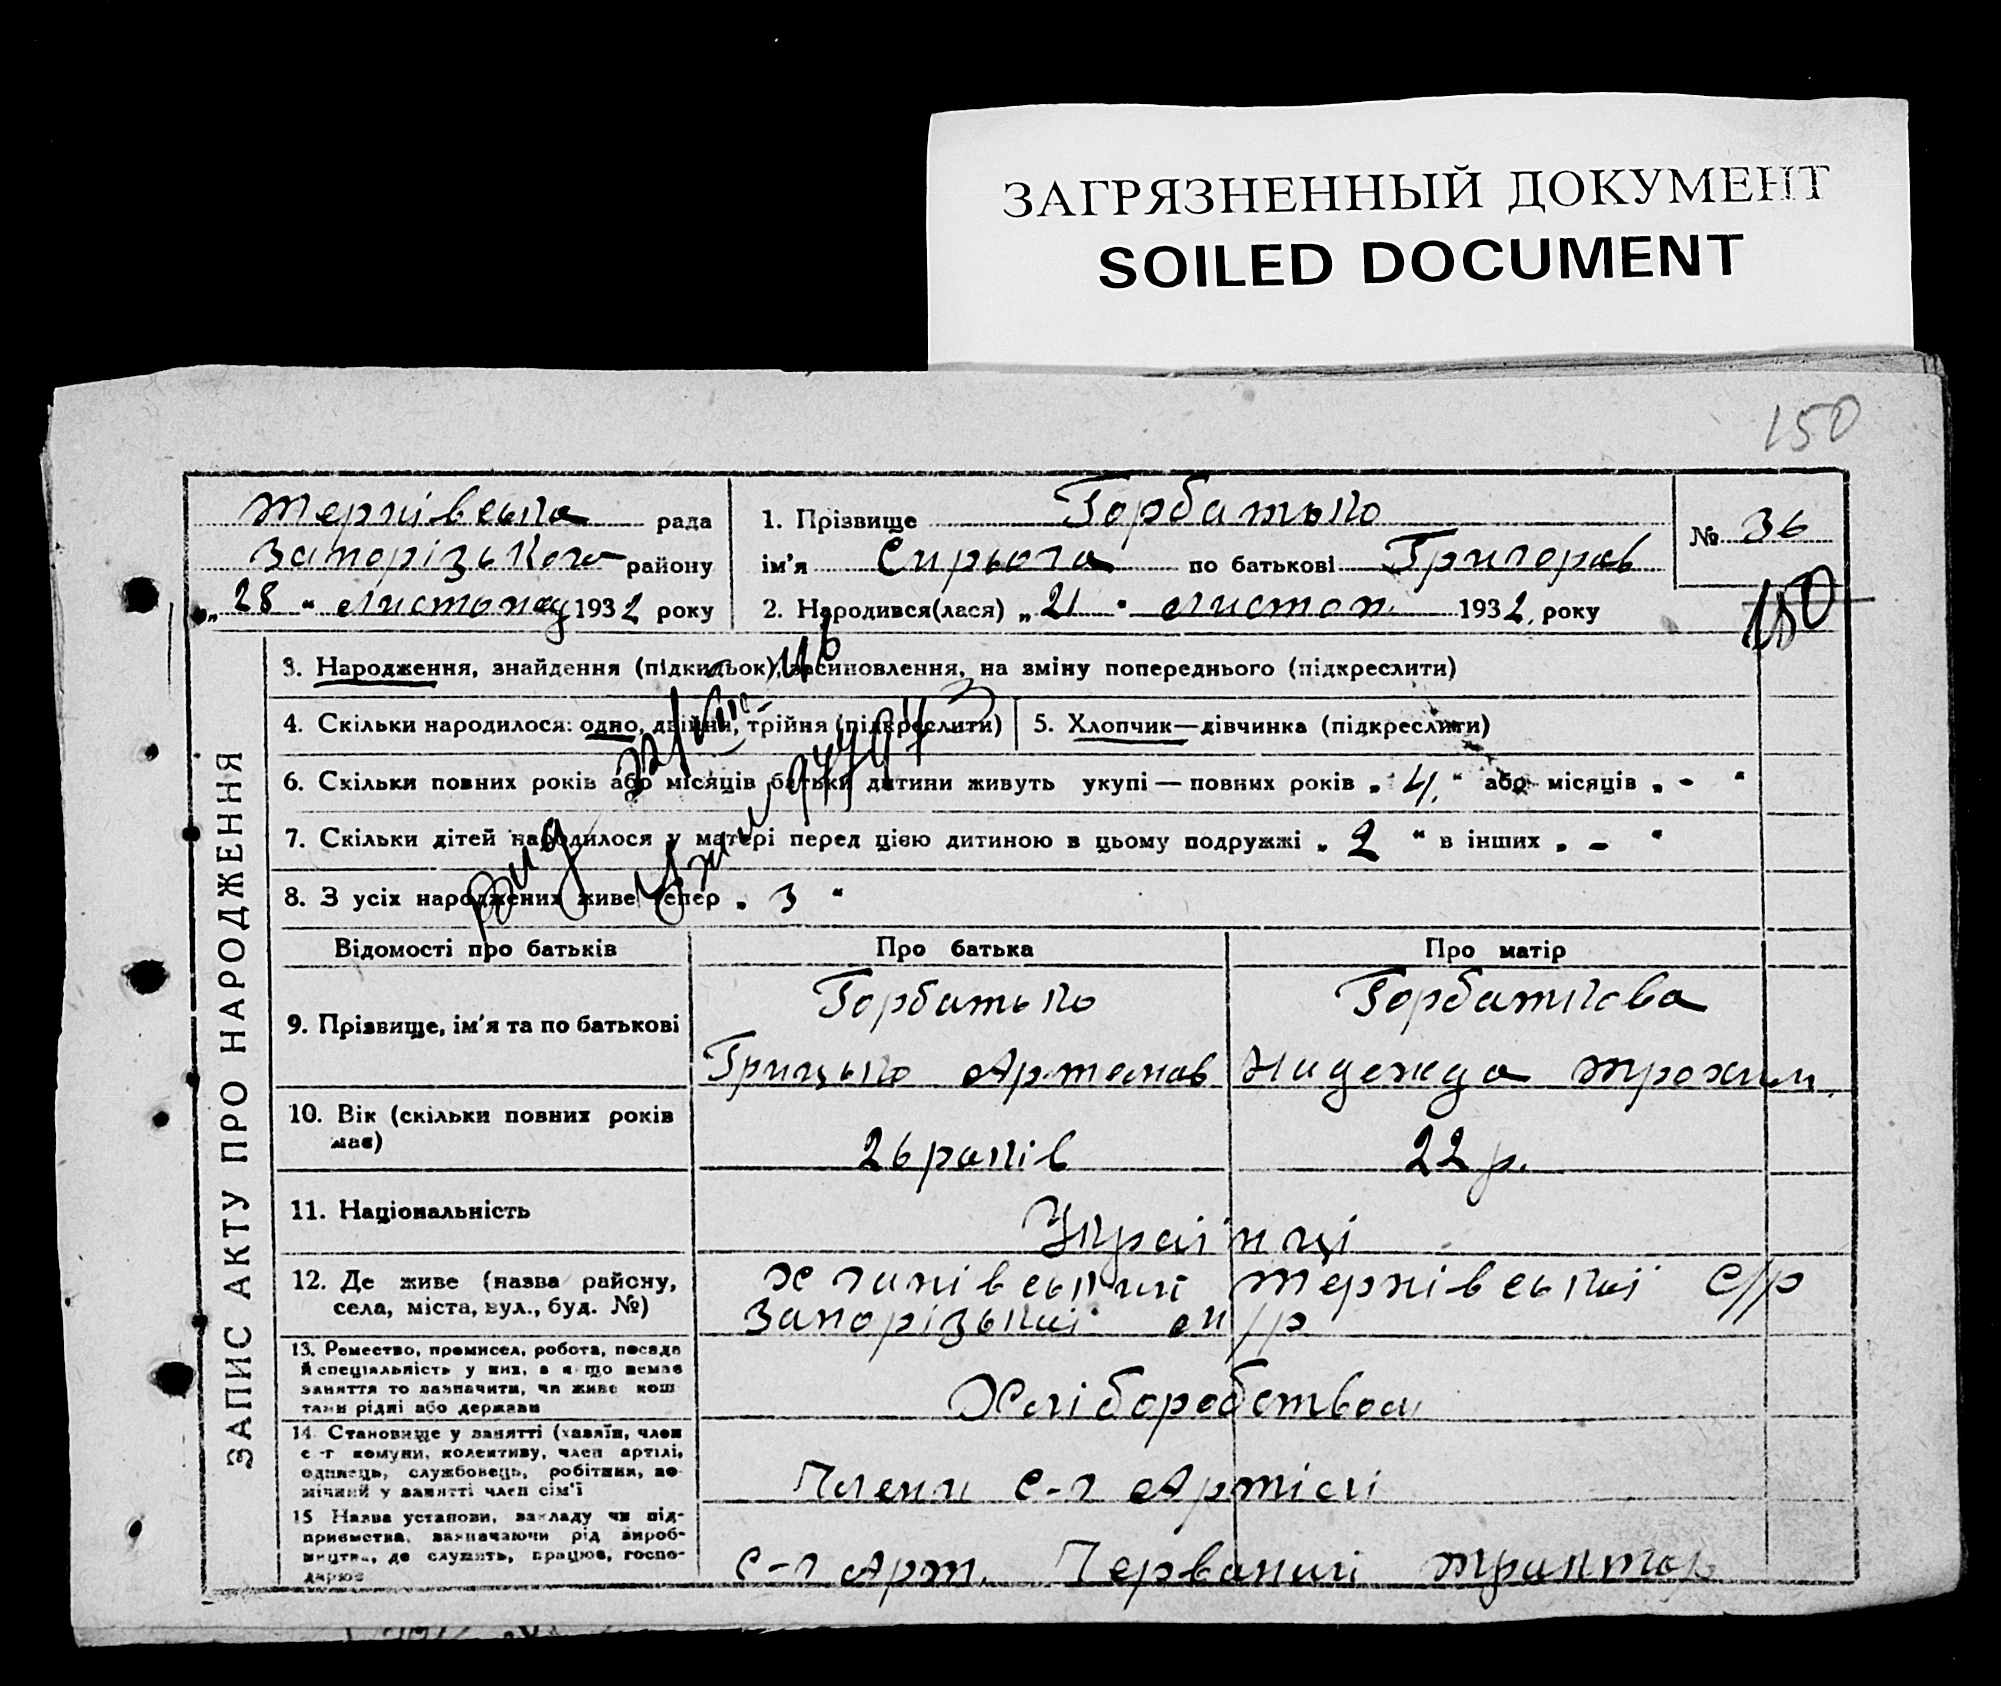 ЗАГРЯЗНЕННЫЙ ДОКУМЕНТ
SOILED DOCUMENT
150
Тернівська рада
Запорізького району
„28" Листопад 1932 року
1. Прізвище Горбатько
ім'я Сирьога по батькові Григоров
2. Народився(лася) „21" Листоп. 1932, року
№ 36
150
ЗАПИС АКТУ ПРО НАРОДЖЕННЯ
3. Народження, знайдення (підкидьок), всиновлення, на зміну попереднього (підкреслити)
4. Скільки народилося: одно, двійни, трійня (підкреслити)
5. Хлопчик—дівчинка (підкреслити)
6. Скільки повних років або місяців батьки дитини живуть укупі — повних років „4" або місяців „-"
7. Скільки дітей народилося у матері перед цією дитиною в цьому подружжі „2" в інших „-"
8. З усіх народжених живе тепер „3"
Відомості про батьків
Про батька
Про матір
9. Прізвище, ім'я та по батькові
Горбатько
Грицько Артемов
Горбаткова
Надежда Трохим.
10. Вік (скільки повних років має)
26 років
22 р.
11. Національність
Українці
12. Де живе (назва району, села, міста, вул., буд. №)
Тернівської С/р
Запорізької м/р
13. Ремество, промисел, робота, посада
й спеціяльність у них, а якщо немає
заняття то зазначити, чи живе кош
тами рідні або держави
Хліборобством
14. Становище у занятті (хазяїн, член
с-г комуни, колективу, член артілі,
одинець, службовець, робітник, по-
мічний у занятті член сім'ї
Члени С-г Артілі
15 Назва установи, закладу чи під-
приємства, зазначаючи рід вироб-
ництва, де служить, працює, госпо-
дарює
С-г Арт. Червоний Трактор